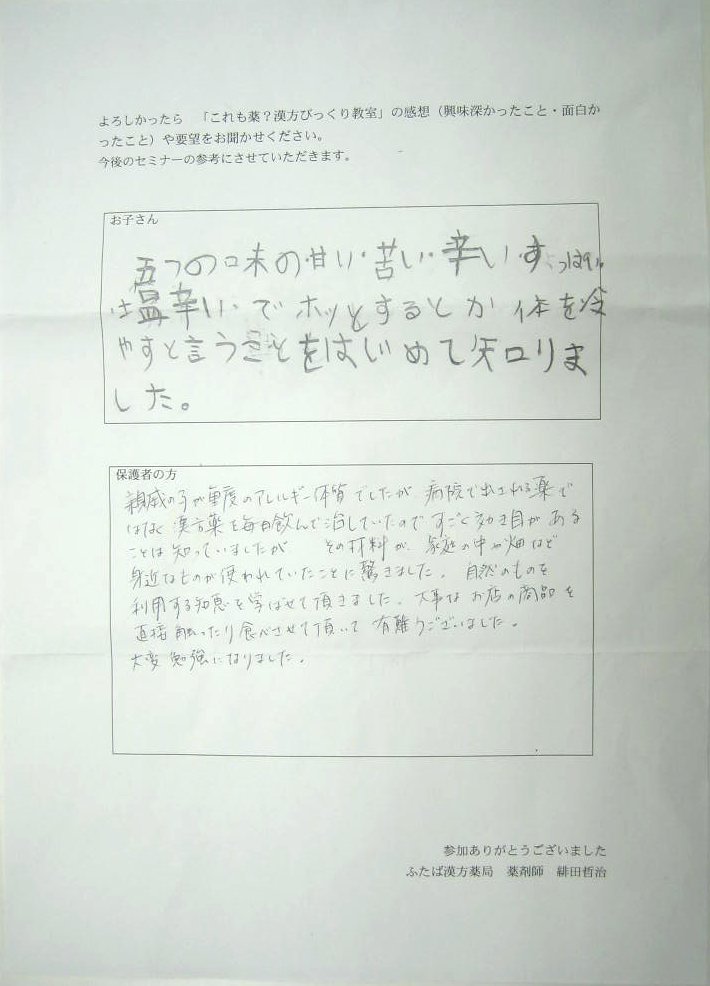 よろしかったら　「これも薬？漢方びっくり教室」の感想（興味深かったこと・面白か
ったこと）や要望をお聞かせください。
今後のセミナーの参考にさせていただきます。
お子さん
五つの味の甘い・苦い・辛い・すっぱい
は塩辛い・でホッとするとか体を冷
やすと言うことをはじめて知りま
した。
保護者の方
親戚の子が重度のアレルギー体質でしたが 病院で出される薬で
はなく漢方薬を毎日飲んで治していたので すごく効き目がある
ことは知っていましたが その材料が、家庭の中や畑など
身近なものが使われていたことに驚きました。自然のものを
利用する知恵を学ばせて頂きました。大事なお店の商品を
直接触ったり食べさせて頂いて 有難うございました。
大変勉強になりました。
参加ありがとうございました
ふたば漢方薬局　薬剤師　緋田哲治